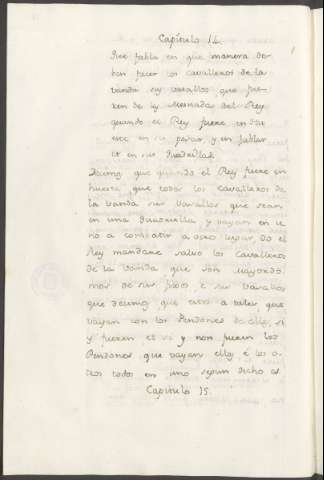 Capítulo 14.
Que fabla en que manera de-
ben facer los cavalleros de la
vanda su vasallos que fue-
ren de la Mesnada del Rey
quando el Rey fuere en
en su
et en sus Quadrillas.
Decimos que quando el Rey fuere en
hueste, que todos los cavalleros de
la vanda sus vasallos que sean
en una Quadrilla, y vayan en
a combatir a otro lugar do el
Rey mandare salvo los Cavalleros
de la vanda que son mayordo
mos de sus fijos, e sus vasallos
que decimos que estos a tales, que
vayan con los Pendones de ellos, si
y fueren et si y non fueren los
Pendones que vayan ellos é los o-
tros todos en uno segun dicho es
Capitulo 15.